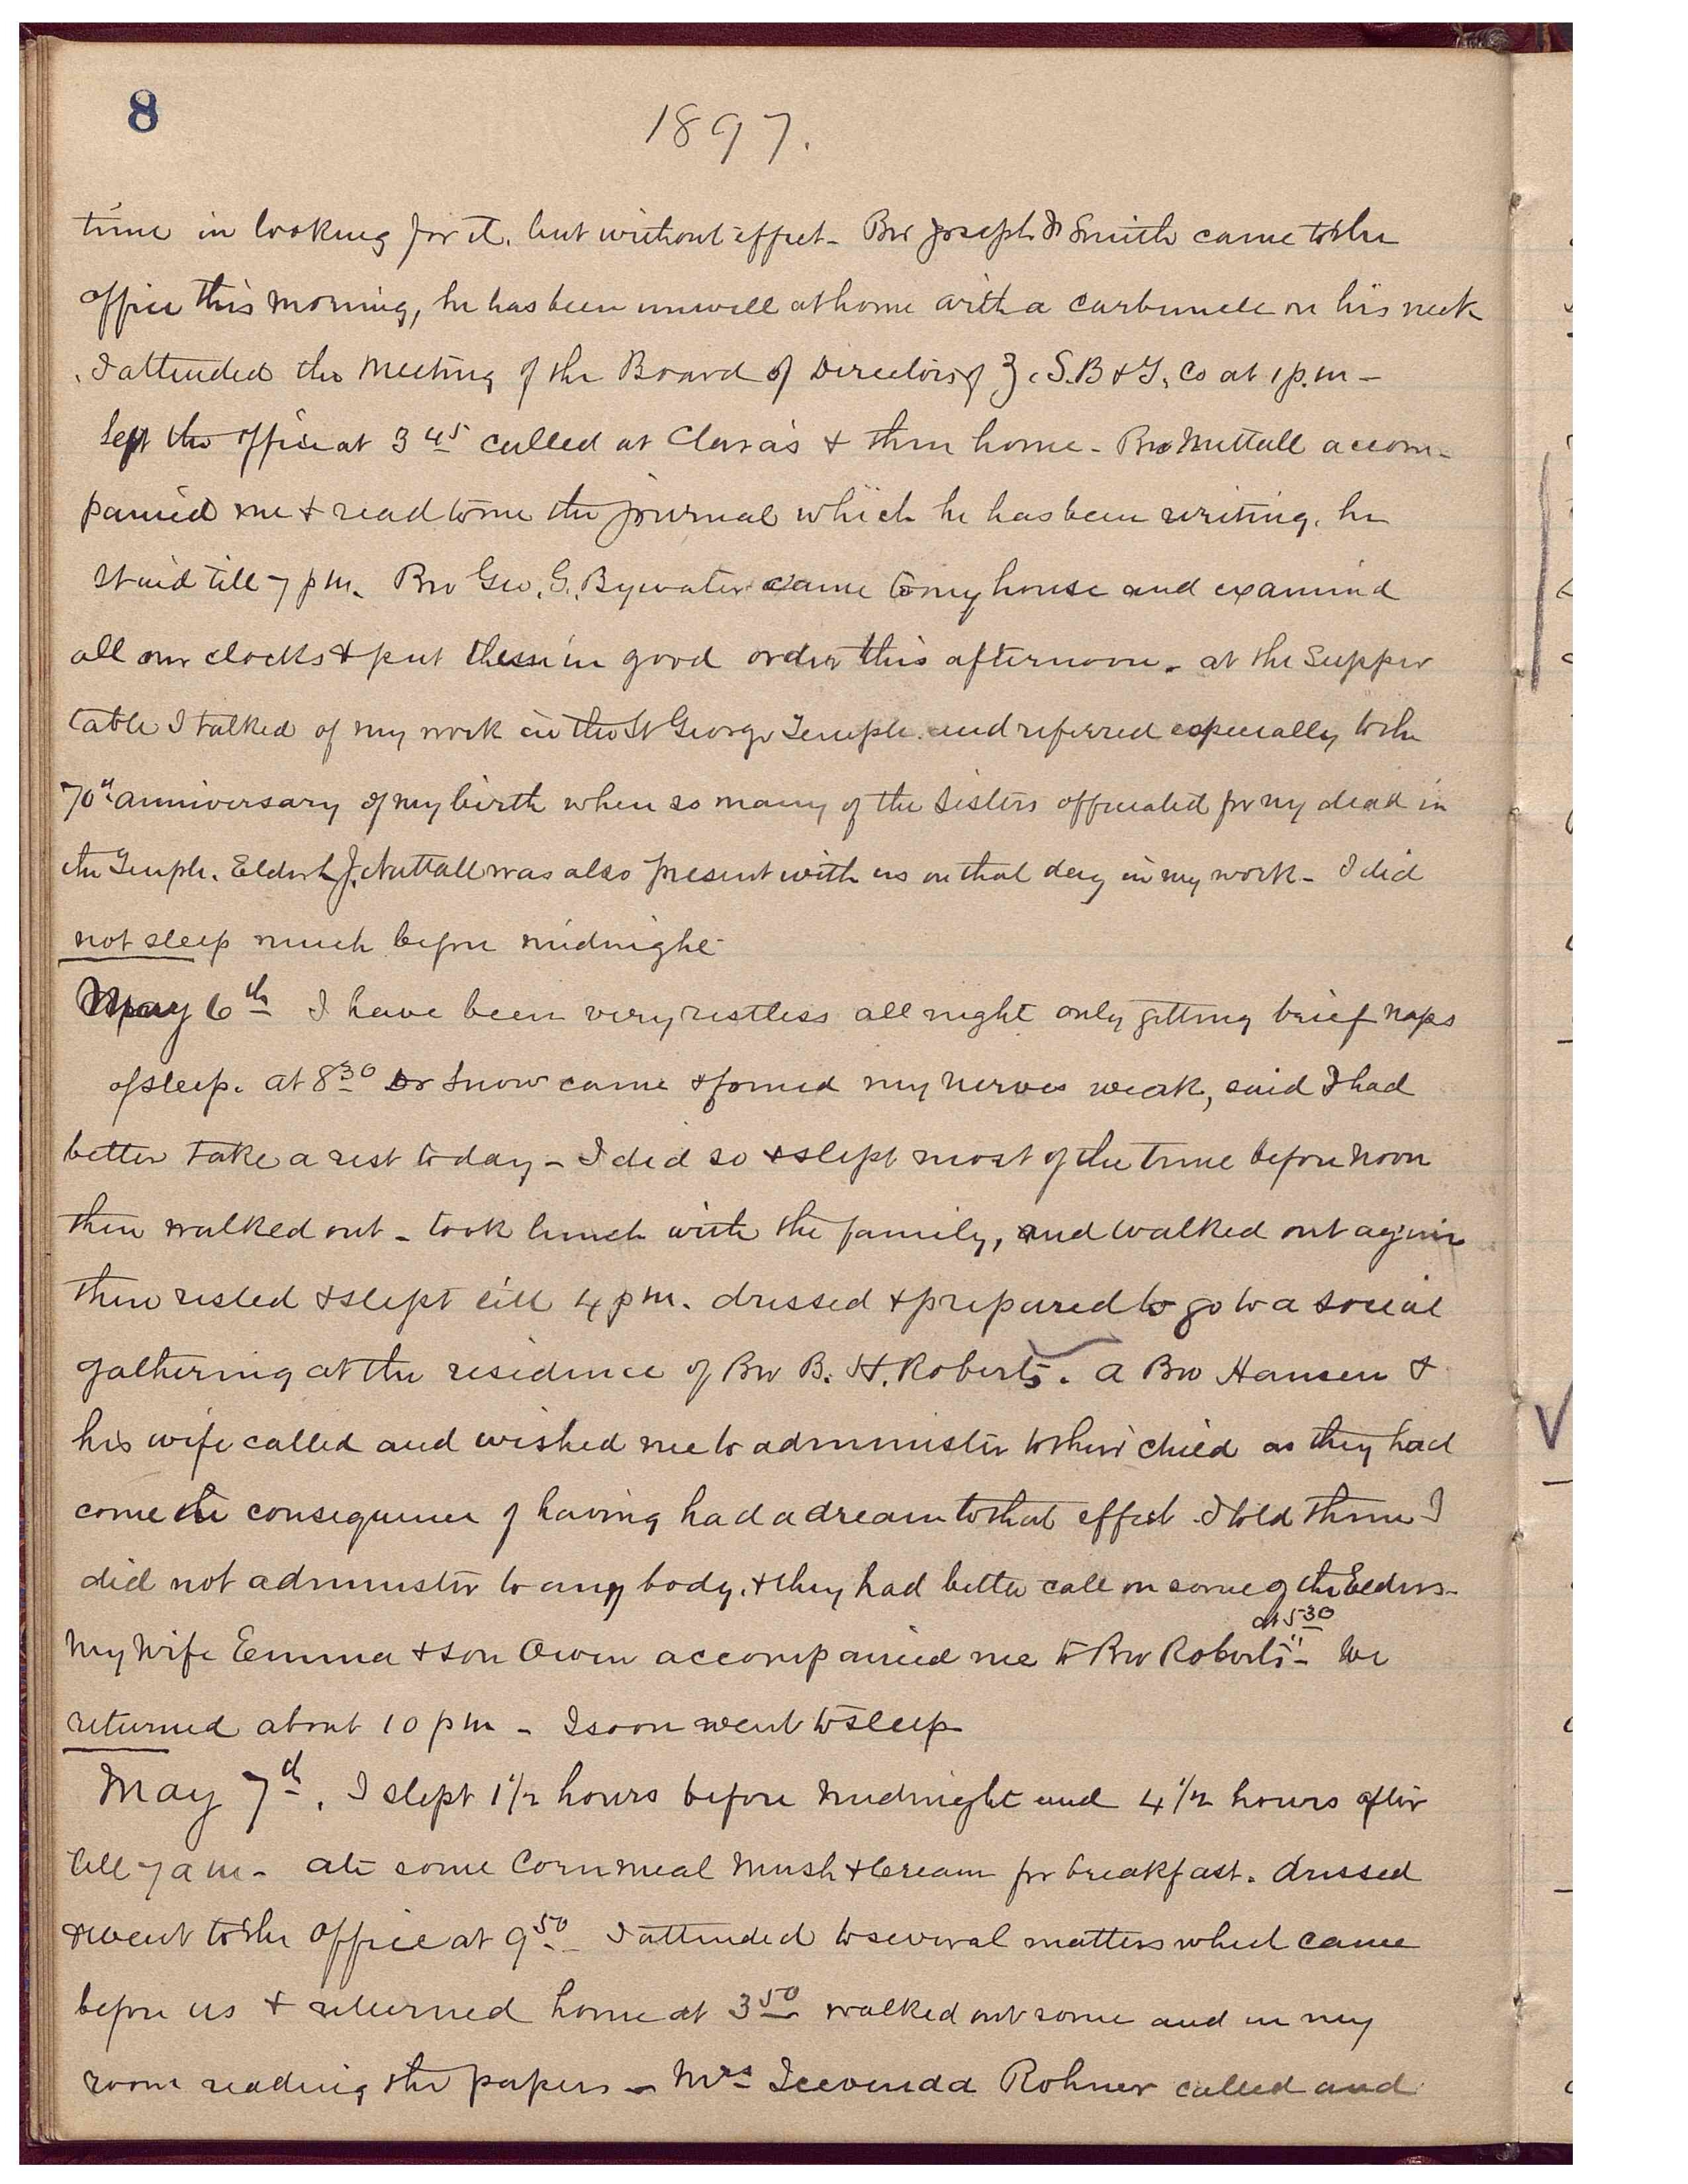 8
1897.
time in looking for it. but without effect - Bro Joseph F Smith came to the
office this morning, he has been unwell at home with a carbuncle on his neck
. I attended the Meeting of the Board of Directors of Z. S. B & T. Co at 1 p.m -
left the office at 3 45 called at Clara's & then home - Bro Nuttall accom-
panied me & read to me the journal which he has been writing. he
staid till 7 pm. Bro Geo. G. Bywater came to my house and examined
all our clocks & put them in good order this afternoon. at the Supper
table I talked of my work in the St George Temple. and referred especially to the
70th anniversary of my birth when so many of the Sisters officiated for my dead in
the Temple. Elder L J. Nuttall was also present with us on that day in my work - I did
not sleep much before midnight
May 6th I have been very restless all night only getting brief naps
of sleep. at 8 30 Dr Snow came & found my nerves weak, said I had
better take a rest to day - I did so & slept most of the time before Noon
then walked out - took lunch with the family, and walked out again
then rested & slept till 4 pm. dressed & prepared to go to a social
gathering at the residence of Bro B. H. Roberts. a Bro Hansen &
his wife called and wished me to administer to their child as they had
come in consequence of having had a dream to that effect. I told them I
did not administer to any body. & they had better call on some of the Elders -
at 5 30
My Wife Emma & son Owen accompanied me to Bro Roberts" - We
returned about 10 pm - I soon went to sleep
May 7th. I slept 1 1/2 hours before Midnight and 4 1/2 hours after
till 7 am - ate some Corn meal Mush & Cream for breakfast. dressed
& went to the office at 9 50 - I attended to several matters which came
before us & returned home at 3 50 walked out some and in my
room reading the papers - Mrs Rohner called and